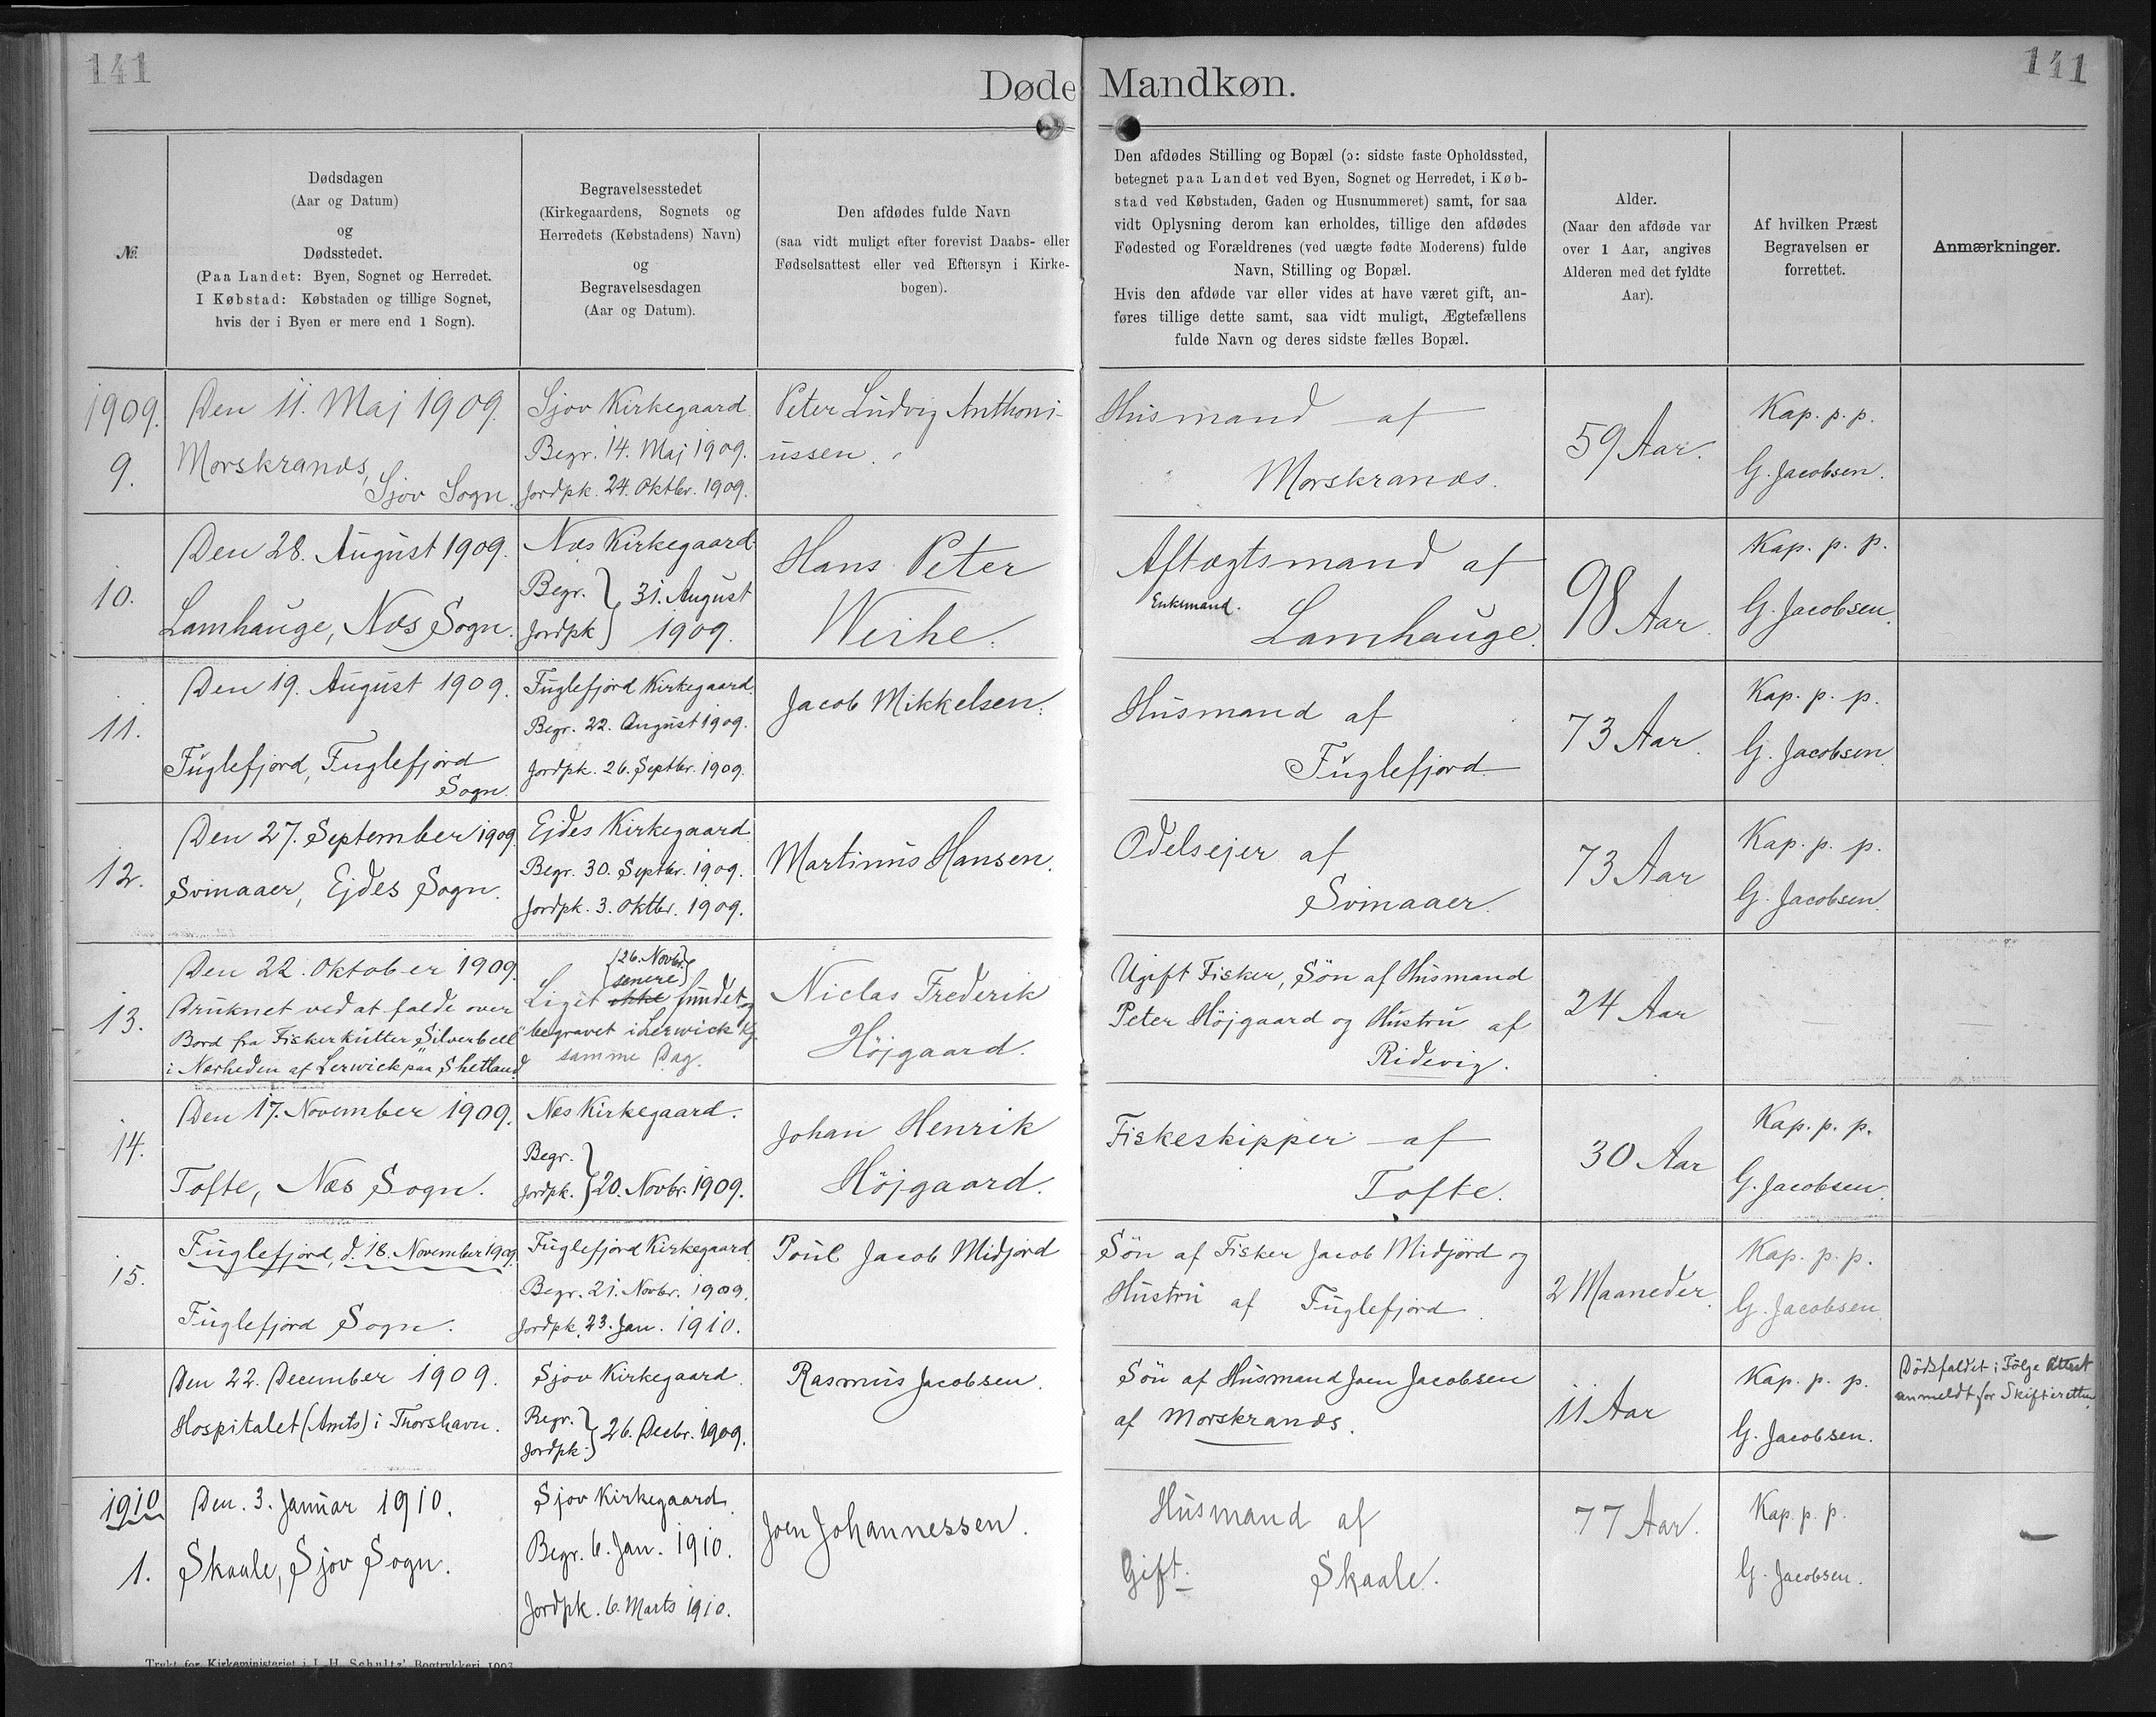 141
141
Døde Mandkøn.
№
Dødsdagen
(Aar og Datum)
og
Dødsstedet.
(Paa Landet: Byen, Sognet og Herredet.
I Købstad: Købstaden og tillige Sognet,
hvis der i Byen er mere end 1 Sogn).
Begravelsesstedet
(Kirkegaardens, Sognets og
Herredets (Købstadens) Navn)
og
Begravelsesdagen
(Aar og Datum).
Den afdødes fulde Navn
(saa vidt muligt efter forevist Daabs- eller
Fødselsattest eller ved Eftersyn i Kirke-
bogen).
Den afdødes Stilling og Bopæl (ɔ: sidste faste Opholdssted,
betegnet paa Landet ved Byen, Sognet og Herredet, i Køb-
stad ved Købstaden, Gaden og Husnummeret) samt, for saa
vidt Oplysning derom kan erholdes, tillige den afdødes
Fødested og Forældrenes (ved uægte fødte Moderens) fulde
Navn, Stilling og Bopæl.
Hvis den afdøde var eller vides at have været gift, an-
føres tillige dette samt, saa vidt muligt, Ægtefællens
fulde Navn og deres sidste fælles Bopæl.
Alder.
(Naar den afdøde var
over 1 Aar, angives
Alderen med det fyldte
Aar).
Af hvilken Præst
Begravelsen er
forrettet.
Anmærkninger.
1909.
9.
Den 11. Maj 1909.
Morskranæs,
Sjov Sogn.
Sjov Kirkegaard.
Begr. 14. Maj 1909.
Jordpk. 24. Oktbr. 1909.
Peter Ludvig Anthoni-
ussen.
Husmand af
Morskranæs.
59 Aar.
Kap. p. p.
G. Jacobsen.
10.
Den 28. August 1909.
Lamhauge, Næs Sogn.
Næs Kirkegaard.
Begr. } 31. August
Jordpk } 1909.
Hans Peter
Weihe.
Aftægtsmand af
Enkemand.
Lamhauge.
98 Aar.
Kap. p. p.
G. Jacobsen.
11.
Den 19. August 1909.
Fuglefjord, Fuglefjord
Sogn.
Fuglefjord Kirkegaard.
Begr. 22. August 1909.
Jordpk. 26. Septbr. 1909.
Jacob Mikkelsen.
Husmand af
Fuglefjord
73 Aar.
Kap. p. p.
G. Jacobsen.
12.
Den 27. September 1909.
Svinaaer, Ejdes Sogn.
Ejdes Kirkegaard.
Begr. 30. Septbr. 1909.
Jordpk. 3. Oktbr. 1909.
Martinus Hansen.
Odelsejer af
Svinaaer.
73 Aar
Kap. p. p.
G. Jacobsen.
13.
Den 22. Oktober 1909.
Druknet ved at falde over
Bord fra Fiskerkutter „Silverbell"
i Nærheden af Lerwick paa Shetland
(26. Novbr.)
(senere)
Liget ikke fundet og
begravet i Lerwick Kg.
samme Dag.
Niclas Frederik
Höjgaard.
Ugift Fisker, Søn af Husmand
Peter Höjgaard og Hustru af
Ridevig.
24 Aar
14.
Den 17. November 1909.
Tofte, Næs Sogn.
Næs Kirkegaard.
Begr.
Jordpk. } 20. Novbr. 1909.
Johan Henrik
Höjgaard.
Fiskeskipper af
Tofte.
30 Aar
Kap. p. p.
G. Jacobsen.
15.
Fuglefjord, d. 18. November 1909.
Fuglefjord Sogn.
Fuglefjord Kirkegaard.
Begr. 21. Novbr. 1909.
Jordpk. 23. Jan. 1910.
Poul Jacob Midjord
Søn af Fisker Jacob Midjörd og
Hustru af Fuglefjord.
2 Maaneder.
Kap. p. p.
G. Jacobsen.
Den 22. December 1909.
Hospitalet (Amts) i Thorshavn.
Sjov Kirkegaard.
Begr.
Jordpk. } 26. Decbr. 1909.
Rasmus Jacobsen.
Søn af Husmand Joen Jacobsen
af Morskranæs.
11 Aar
Kap. p. p.
G. Jacobsen.
Dödsfaldet i Følge Attest
anmeldt for Skifteretten.
1910
1.
Den. 3. Januar 1910.
Skaale, Sjov Sogn.
Sjov Kirkegaard.
Begr. 6. Jan. 1910.
Jordpk. 6. Marts 1910.
Joen Johannessen.
Husmand af
Gift. Skaale.
77 Aar.
Kap. p. p.
G. Jacobsen.
Trykt for Kirkeministeriet i J. H. Schultz' Bogtrykkeri 1903